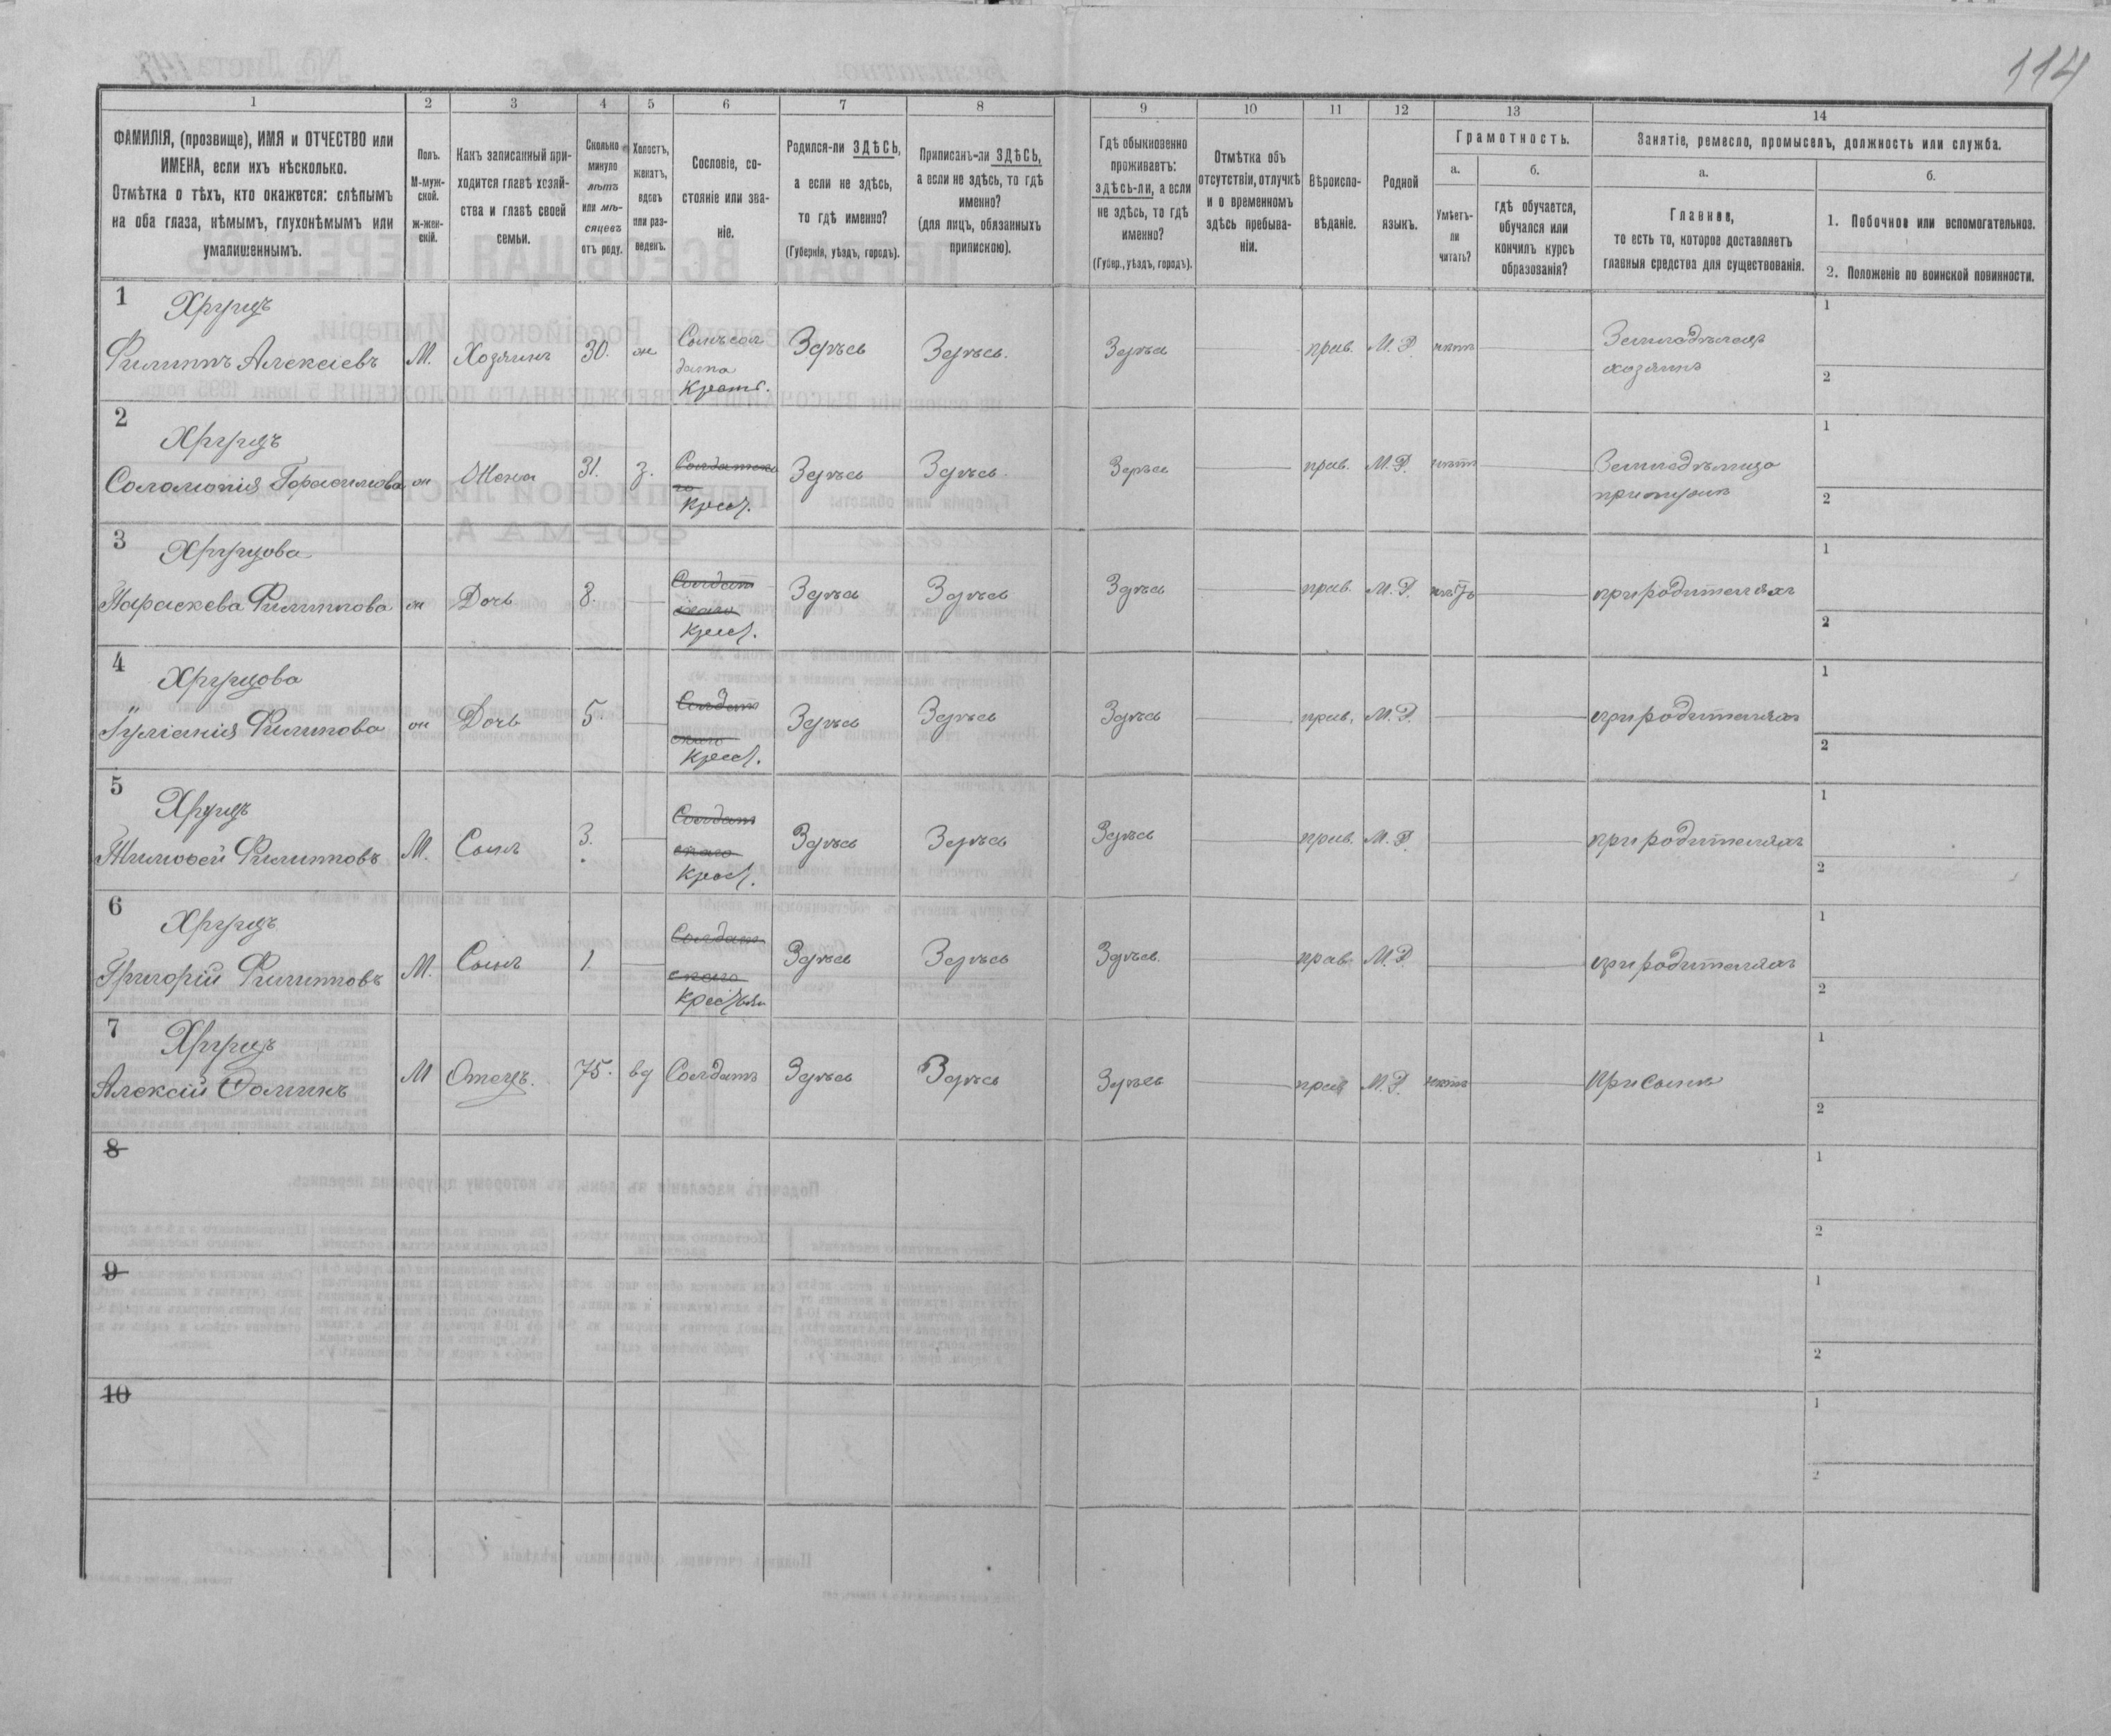 114
1 2 3 4 5 6 7 8 9 10 11 12 13 14
ФАМИЛІЯ, (прозвище), ИМЯ и ОТЧЕСТВО или
ИМЕНА, если ихъ нѣсколько.
Отмѣтка о тѣхъ, кто окажется: слѣпымъ
на оба глаза, нѣмымъ, глухонѣмымъ или
умалишеннымъ.
Полъ.
М-муж-
ской.
ж-жен-
скій.
Какъ записанный при-
ходится главѣ хозяй-
ства и главѣ своей
семьи.
Сколько
минуло
лѣтъ
или мѣ-
сяцевъ
отъ роду.
Холостъ,
женатъ,
вдовъ
или раз-
веденъ.
Сословіе, со-
стояніе или зва-
ніе.
Родился-ли ЗДѢСЬ,
а если не здѣсь,
то гдѣ именно?
(Губернія, уѣздъ, городъ).
Приписанъ-ли ЗДѢСЬ,
а если не здѣсь, то гдѣ
именно?
(для лицъ, обязанныхъ
припискою).
Гдѣ обыкновенно
проживаетъ:
здѣсь-ли, а если
не здѣсь, то гдѣ
именно?
(Губер., уѣздъ, городъ).
Отмѣтка объ
отсутствіи, отлучкѣ
и о временномъ
здѣсь пребыва-
ніи.
Вѣроиспо-
вѣданіе.
Родной
языкъ.
Грамотность.
а.
Умѣетъ-
ли
читать?
б.
гдѣ обучается,
обучался или
кончилъ курсъ
образованія?
Занятіе, ремесло, промыселъ, должность или служба.
а.
Главное,
то есть то, которое доставляетъ
главныя средства для существованія.
б.
1. Побочное или вспомогательное.
2. Положеніе по воинской повинности.
1 Хрущъ
Филиппъ Алексіевъ М. Хозяинъ 30. ж Сынъ сол
дата
Крест. Здѣсь Здѣсь. Здѣсь прав. М. Р. нѣтъ Земледѣлецъ
хозяинъ
1
2
2 Хрущъ
Соломонія Герасимова ж Жена 31. з. Солдатска
го
Крест. Здѣсь Здѣсь. Здѣсь прав. М. Р. нѣтъ Земледѣлица
при мужѣ
1
2
3 Хрущова
Параскева Филиппова ж Дочь 8. Солдат
скаго
Крест. Здѣсь Здѣсь Здѣсь прав. М. Р. нѣтъ при родителяхъ
1
2
4 Хрущова
Іуліанія Филипова ж Дочь 5. Солдат
скаго
Крест. Здѣсь Здѣсь Здѣсь прав. М. Р. при родителяхъ
1
2
5 Хрущъ
Тимофей Филипповъ М. Сынъ 3. Солдат
скаго
Крест. Здѣсь Здѣсь Здѣсь прав. М. Р. при родителяхъ
1
2
6 Хрущъ
Григорій Филипповъ М. Сынъ 1. Солдат
скаго
Крестьян Здѣсь Здѣсь Здѣсь. прав. М. Р. при родителяхъ
1
2
7 Хрущъ
Алексій Фоминъ М Отецъ. 75. вд Солдатъ Здѣсь Здѣсь Здѣсь прав М. Р. нѣтъ При сынѣ
1
2
8
1
2
9
1
2
10
1
2